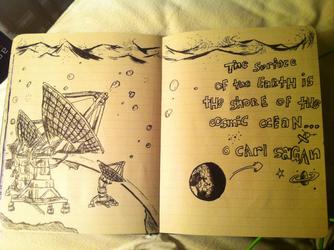 The Surface
of the Earth is
the shore of the
cosmic ocean...
© Carl Sagan